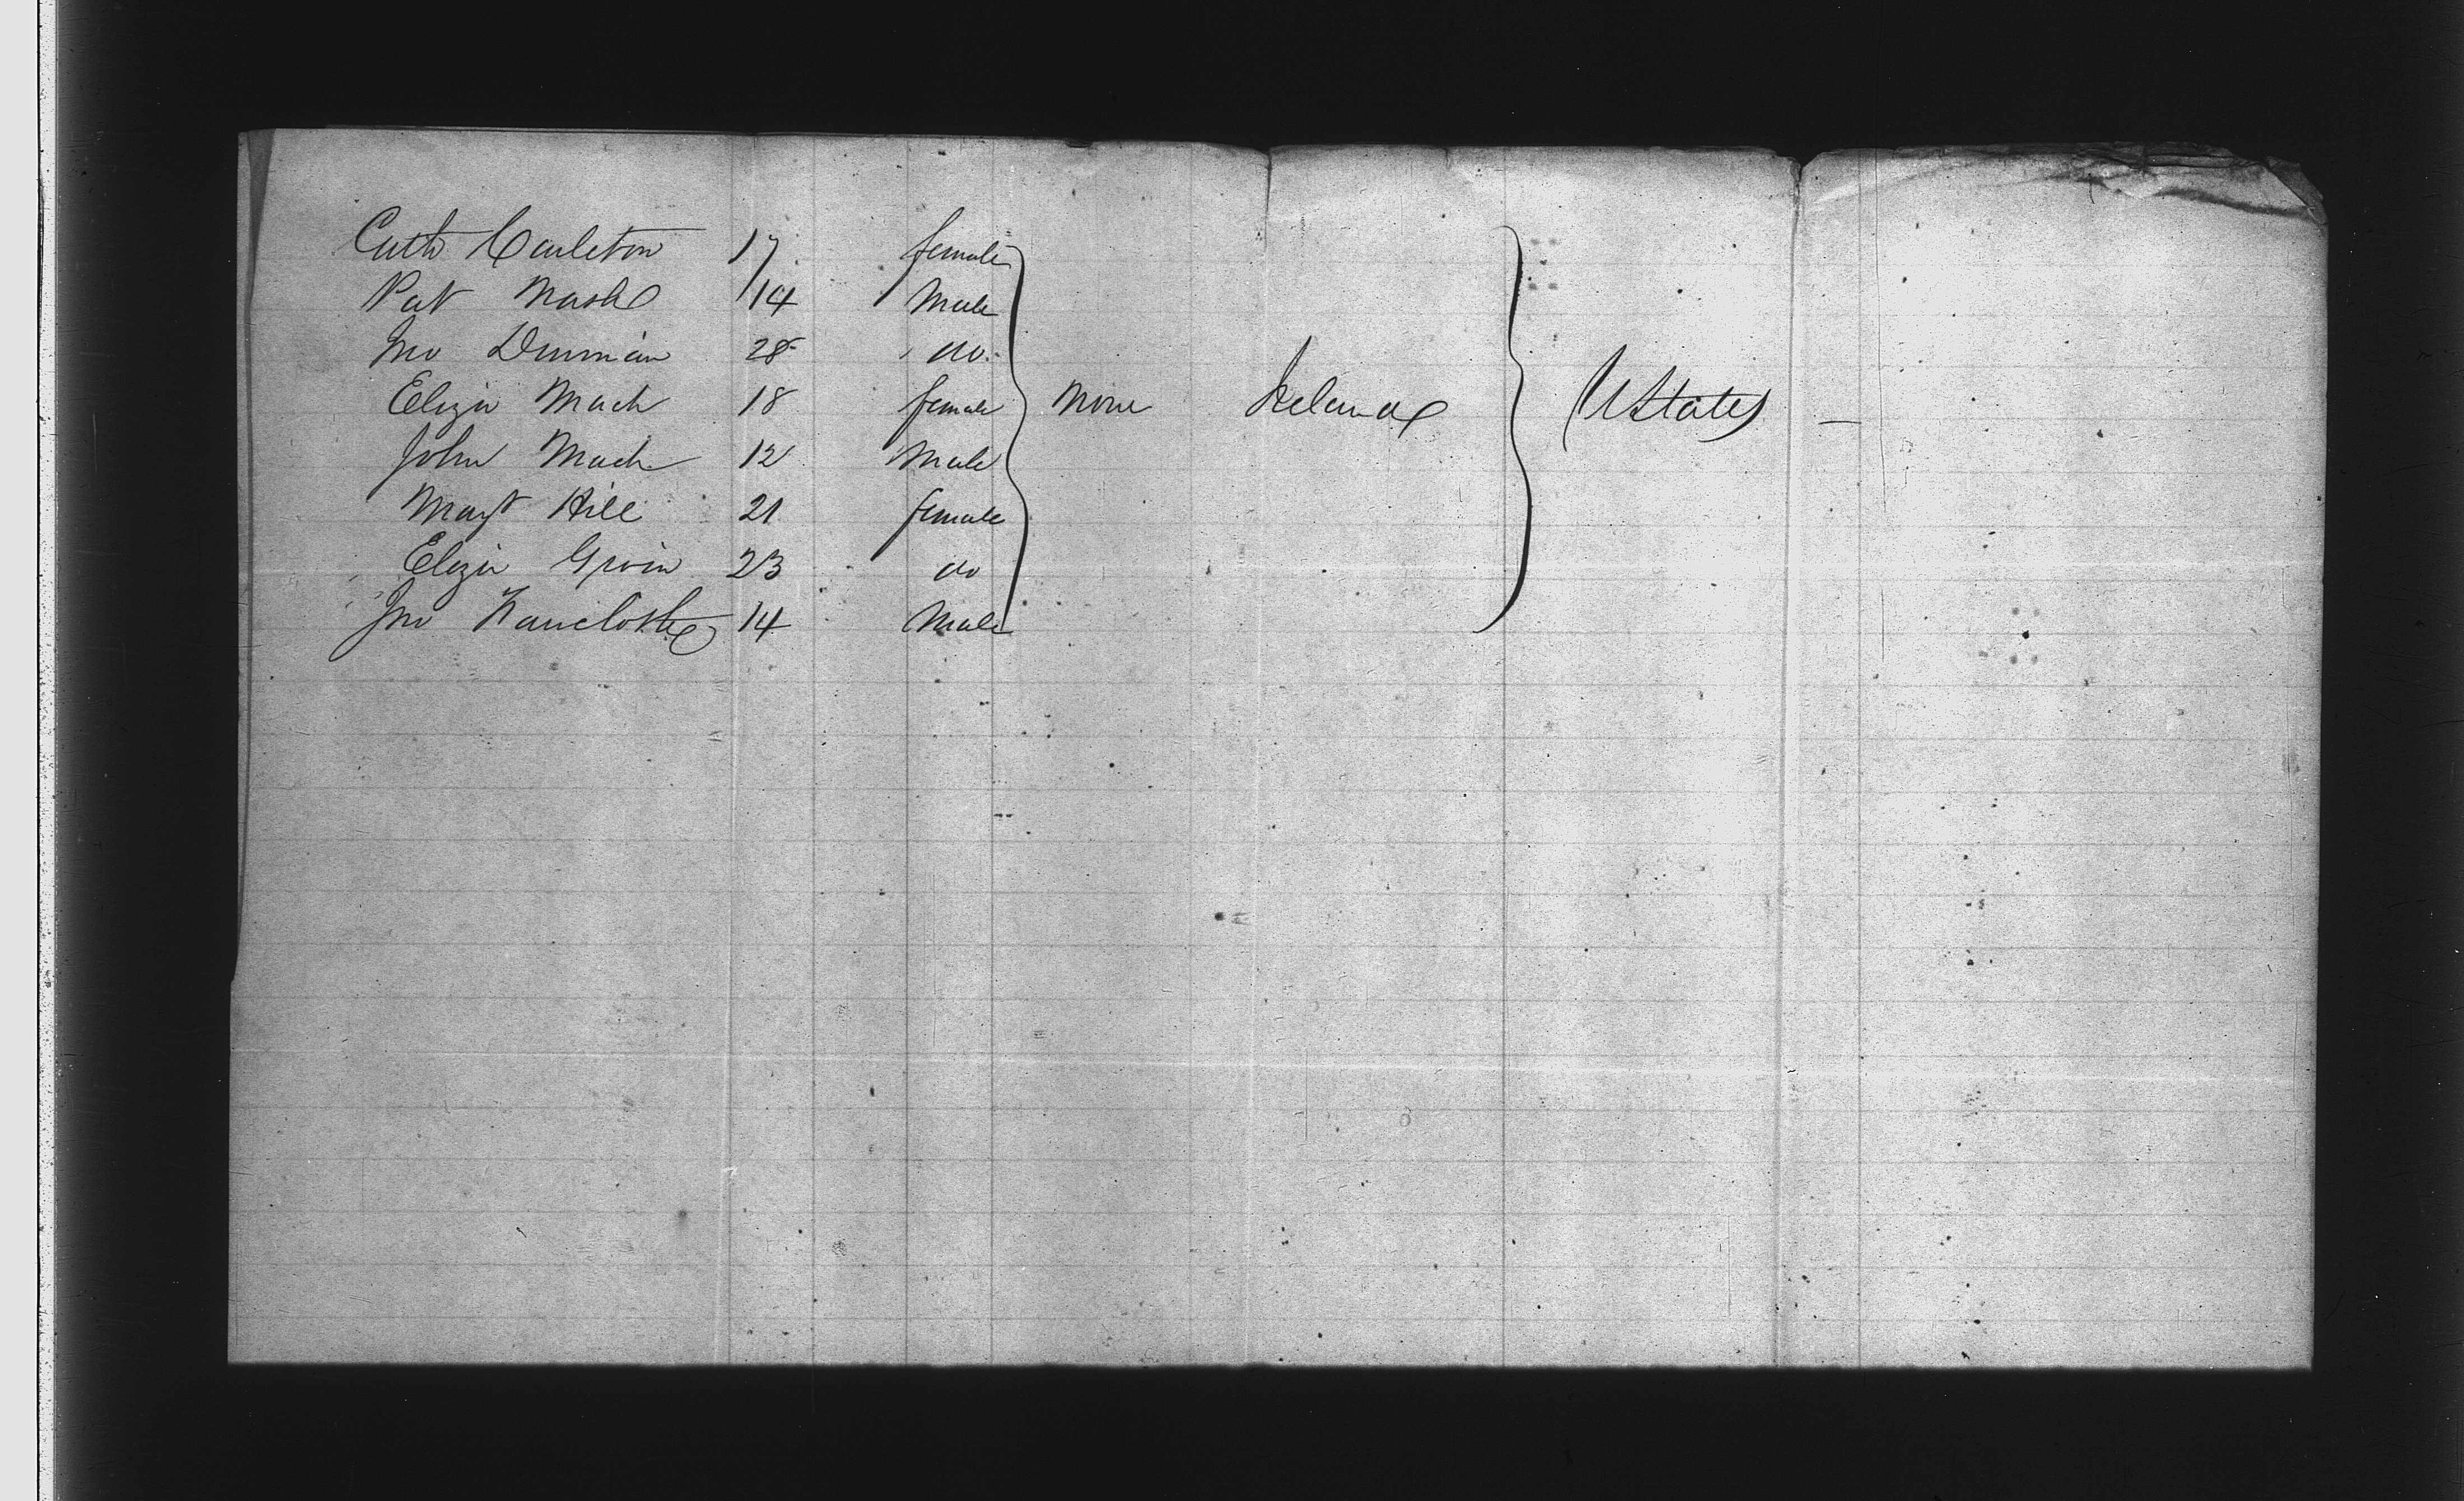 Cath Carleton 17 female
Pat Nash 14 Male
Jno 28 do.
Eliza Mack 18 female None Ireland UStates —
John Mack 12 Male
Margt Hill 21 female
Eliza 23 do
Jno 14 Male